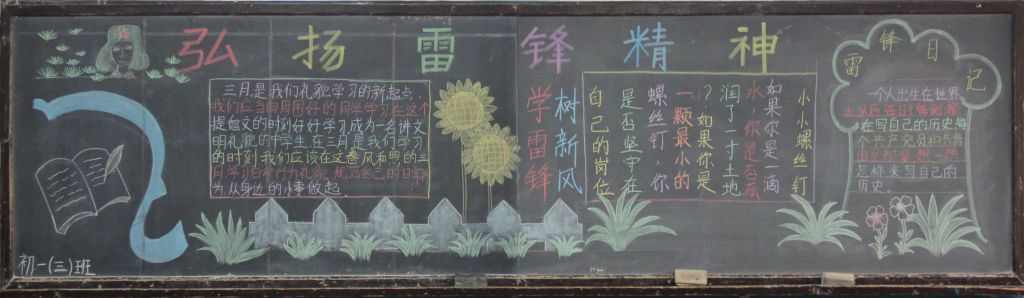 弘扬雷锋精神
三月,是我们礼貌学习的新起点,
我们应当向周围好的同学学习,在这个
提倡文的时刻好好学习,成为一名讲文
明礼貌的中学生,在三月,是我们学习
的时刻,我们应该在这春风和煦的三
月学习日常行为礼貌,规范自己的日常行
为,从身边的小事做起.
学雷锋
树新风
小小螺丝钉
如果你是一滴
水,你是否滋
润了一寸土地
!?如果你是
一颗最小的
螺丝钉,你
是否坚守在
自己的岗位
雷锋日记
一个人出生在世界
在写自己的历史,每
个共产党员和共青
怎样来写自己的
历史.
初一(三)班